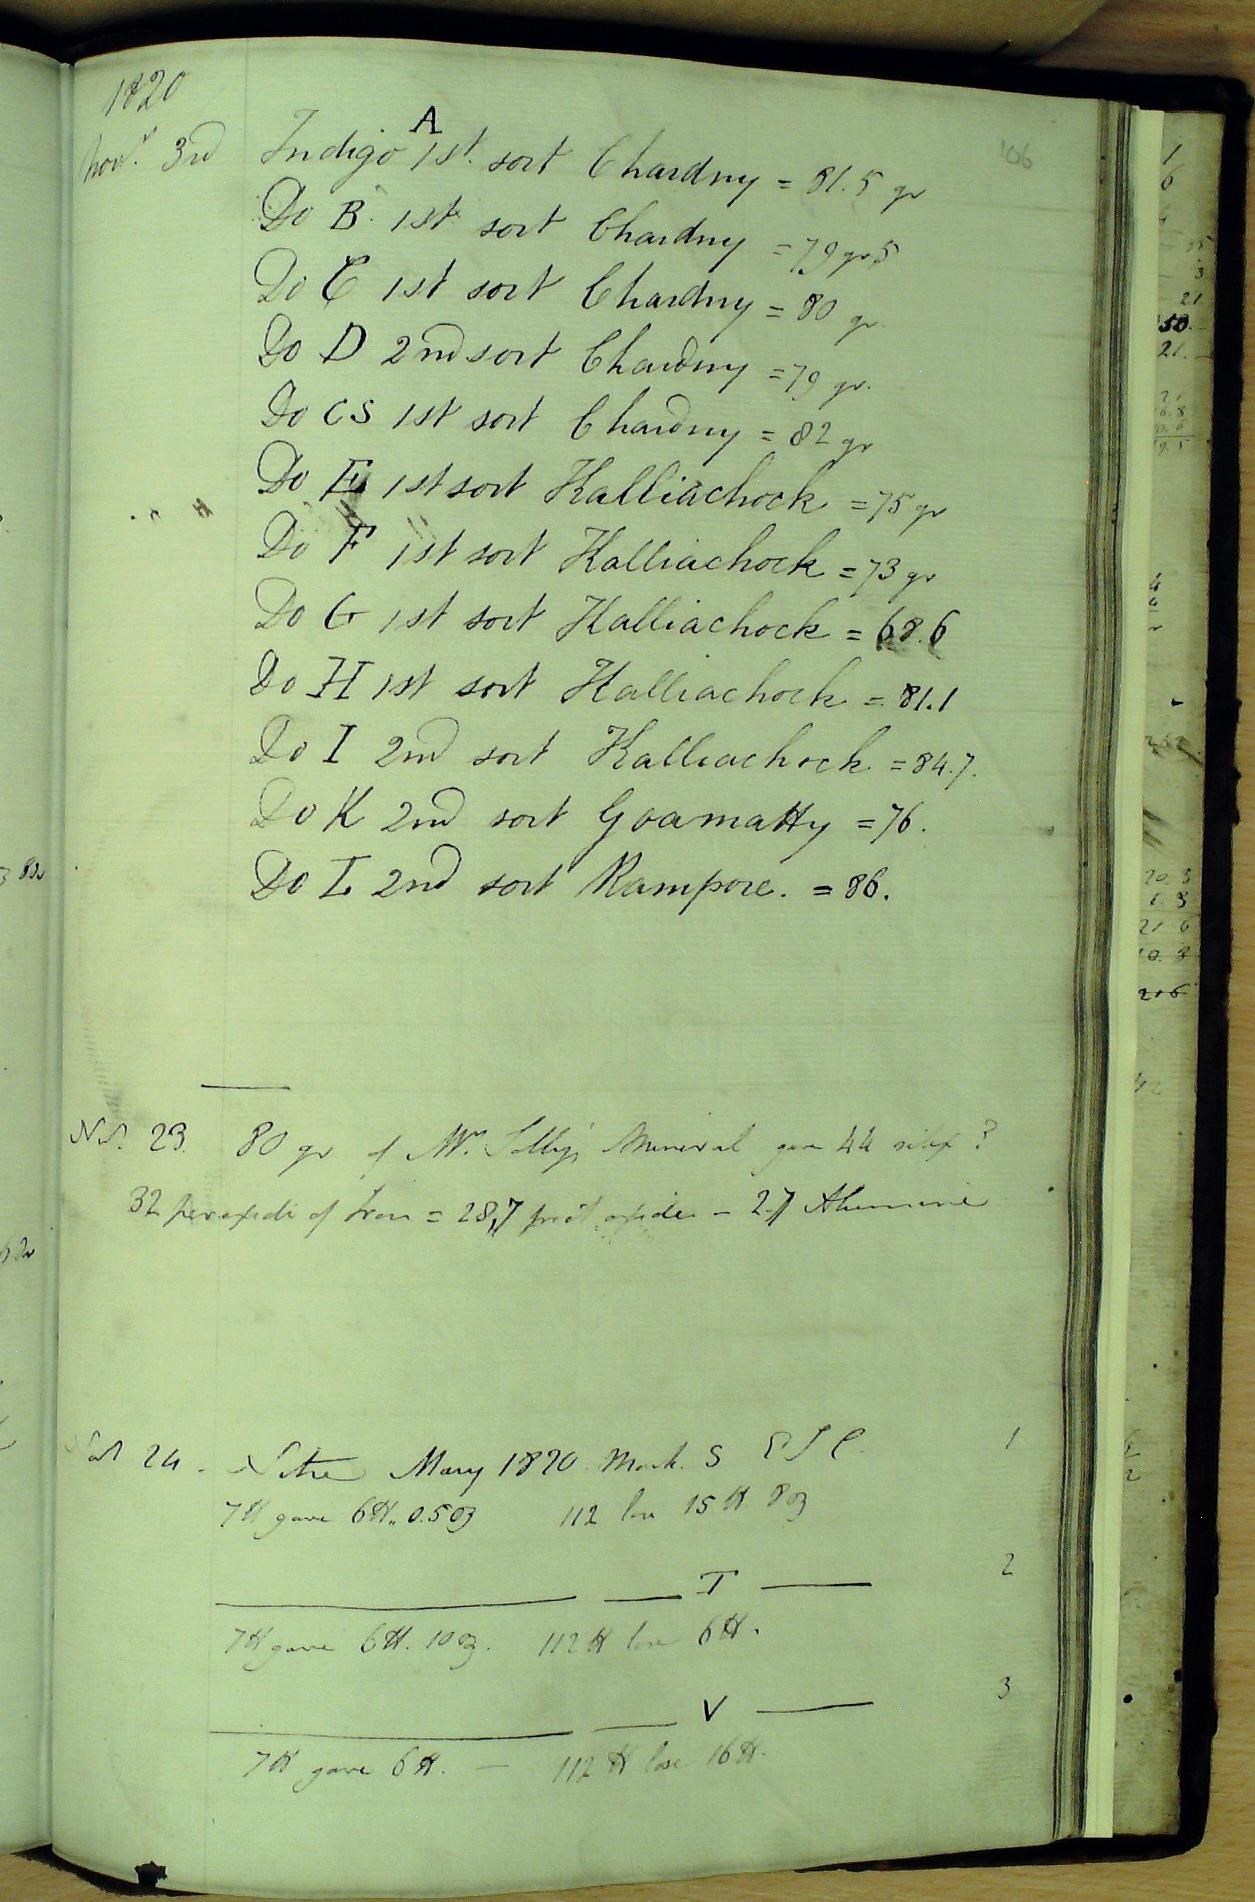 1820
106
Novr. 3rd Indigo A 1st. sort Chardny = 81.5 gr
Do B. 1st sort Chardny = 79 gr,5
Do C 1st sort Chardny = 80 gr.
Do D 2nd sort Chardny = 79 gr.
Do CS 1st sort Chardny = 82 gr
Do E 1st sort Kalliachock = 75 gr
Do F 1st sort Kalliachock = 73 gr
Do G 1st sort Kalliachock = 68.6
Do H 1st sort Kalliachock = 81.1
Do I 2nd sort Kalliachock = 84.7.
Do K 2nd sort Goamatty = 76.
Do L 2nd sort Rampore. = 86.
23. 80 gr of Mr. Solly's Mineral gave 44 silex?
32 peroxide of Iron = 28,7 protoxide - 2.7 Alumine
24. Nitre Mary 1820 Mark. S E I C. 1
7 ℔ gave 6 ℔. 0.5 oz 112 lose 15 ℔ 8 oz
T 2
7 ℔ gave 6 ℔. 10 oz. 112 ℔ lose 6 ℔.
V 3
7 ℔ gave 6 ℔. — 112 ℔ lose 16 ℔.